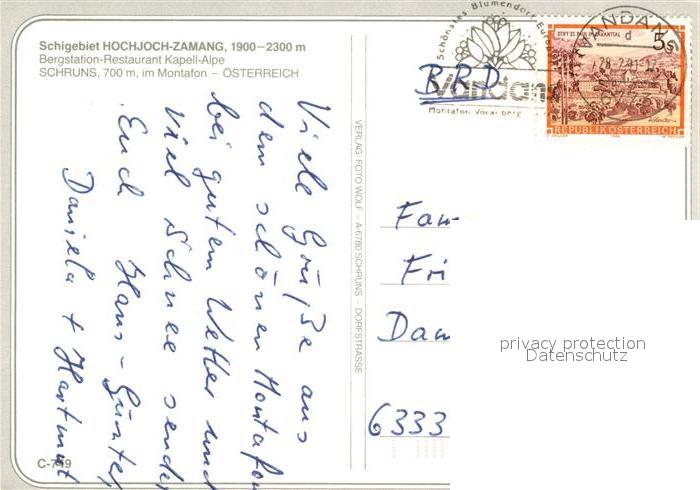 Schigebiet HOCHJOCH-ZAMANG, 1900–2300 m
Bergstation-Restaurant Kapell-Alpe
SCHRUNS, 700 m, im Montafon – ÖSTERREICH
Viele Grüße aus
dem schönen Montafon
bei gutem Wetter und
viel Schnee senden
Euch Hans-Günter
Daniela + Hartmut
C-749
VERLAG FOTO WOLF – A-6780 SCHRUNS – DORFSTRASSE
Schönstes Blumendorf Europas
Vandans
Montafon Vorarlberg
BRD
VANDANS
d
28-2.91-17
STIFT ST. PAUL IM LAVANTTAL
5s
REPUBLIK ÖSTERREICH
Fam
Fri
Dan
6333
privacy protection
Datenschutz